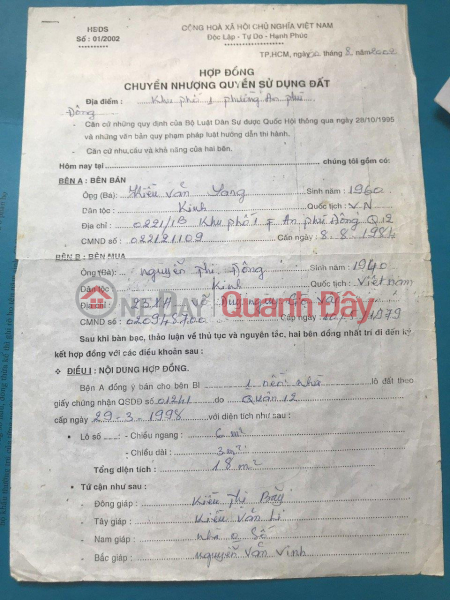 HĐDS
Số : 01/2002
CỘNG HOÀ XÃ HỘI CHỦ NGHĨA VIỆT NAM
Độc Lập - Tự Do - Hạnh Phúc
TP.HCM, ngày tháng 8 năm
HỢP ĐỒNG
CHUYỂN NHƯỢNG QUYỀN SỬ DỤNG ĐẤT
Địa điểm : Khu phố 1 phường An phú
Đông
- Căn cứ những quy định của Bộ Luật Dân Sự được Quốc Hội thông qua ngày 28/10/1995
và những văn bản quy phạm pháp luật hướng dẫn thi hành.
- Căn cứ nhu cầu và khả năng của hai bên.
Hôm nay tại chúng tôi gồm có:
BÊN A : BÊN BÁN
Ông (Bà): Kiều Văn Sinh năm : 1960
Dân tộc : Kinh Quốc tịch : V.N
Địa chỉ : 0221/1B Khu phố 1 F An phú Đông Q12
CMND số : 022121109 Cấp ngày 8.8.1984
BÊN B : BÊN MUA
Ông (Bà): nguyễn Thị Đông Sinh năm : 1940
Dân tộc Kinh Quốc tịch Việt nam
Địa chỉ
CMND số : Cấp ngày 1979
Sau khi bàn bạc, thảo luận về thủ tục và nguyên tắc, hai bên đồng nhất trí đi đến ký
kết hợp đồng với các điều khoản sau :
❖ ĐIỀU I : NỘI DUNG HỢP ĐỒNG.
Bên A đồng ý bán cho bên B 1 nền nhà lô đất theo
giấy chứng nhận QSDĐ số 01241 do Quận 12
cấp ngày 29-3-1998 với diện tích như sau :
• Lô số - Chiều ngang : 6 m²
- Chiều dài : 3m²
Tổng diện tích : 18 m²
• Tứ cận như sau :
- Đông giáp : Kiều Thị
- Tây giáp : Kiều Văn
- Nam giáp : nhà
- Bắc giáp : nguyễn Văn Vinh
ONEDAY Quảnh Dây